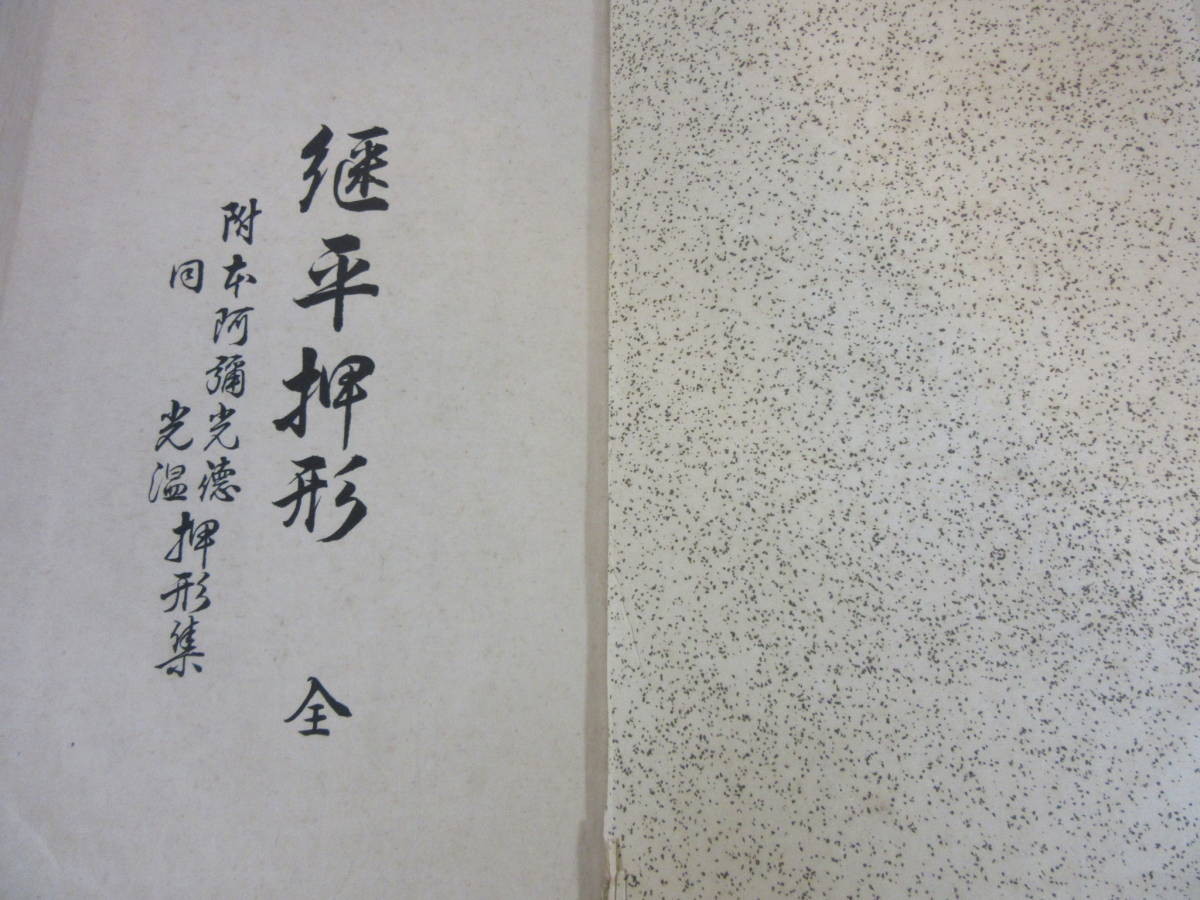 継平押形 全
附本阿彌光德
同 光温
押形集